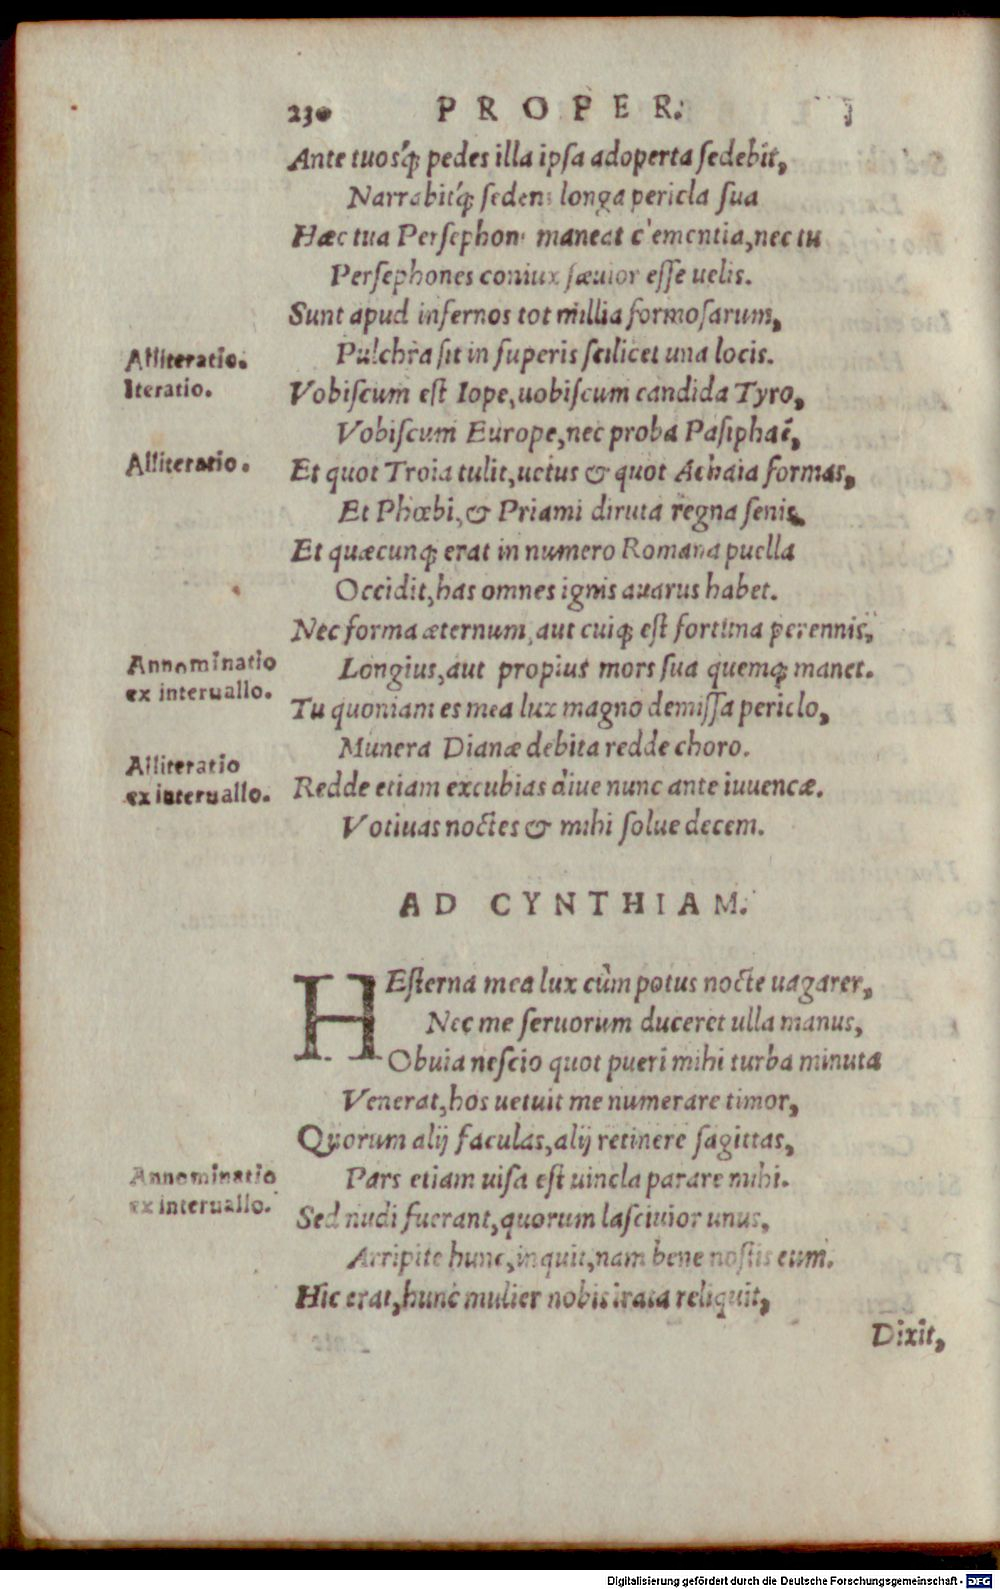 230 PROPER.
Ante tuosq́; pedes illa ipſa adoperta ſedebit,
Narrabitq́; ſedens longa pericla ſua
Hæc tua Perſephone maneat clementia, nec tu
Perſephones coniux ſæuior eſſe uelis.
Sunt apud infernos tot millia formoſarum,
Alliteratio.
Pulchra ſit in ſuperis ſcilicet una locis.
Iteratio.
Vobiſcum eſt Iope, uobiſcum candida Tyro,
Vobiſcum Europe, nec proba Paſiphaë,
Alliteratio.
Et quot Troia tulit, uetus & quot Achaia formas,
Et Phœbi, & Priami diruta regna ſenis.
Et quæcunq; erat in numero Romana puella
Occidit, has omnes ignis auarus habet.
Nec forma æternum, aut cuiq; eſt fortuna perennis,
Annominatio
Longius, aut propius mors ſua quemq; manet.
ex interuallo.
Tu quoniam es mea lux magno demiſſa periclo,
Munera Dianæ debita redde choro.
Alliteratio
ex interuallo.
Redde etiam excubias diue nunc ante iuuencæ.
Votiuas noctes & mihi ſolue decem.
AD CYNTHIAM.
HEſterna mea lux cùm potus nocte uagarer,
Nec me ſeruorum duceret ulla manus,
Obuia neſcio quot pueri mihi turba minuta
Venerat, hos uetuit me numerare timor,
Quorum alij faculas, alij retinere ſagittas,
Annominatio
Pars etiam uiſa eſt uincla parare mihi.
ex interuallo.
Sed nudi fuerant, quorum laſciuior unus,
Arripite hunc, inquit, nam bene noſtis eum.
Hic erat, hunc mulier nobis irata reliquit,
Dixit,
Digitalisierung gefördert durch die Deutsche Forschungsgemeinschaft - DFG